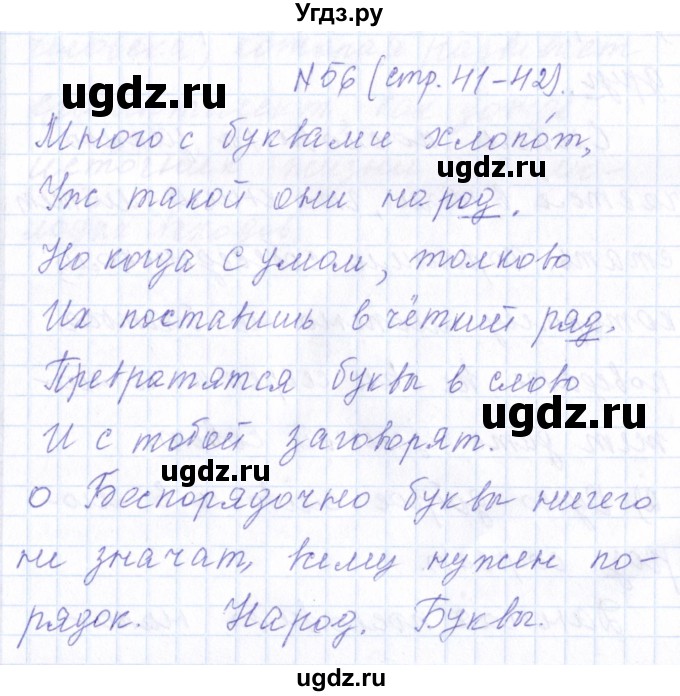 Угдз.ру
N 56 (стр. 41-42).
ugdz.ru
Много с буквами хлопо́т,
ugdz.ru
Уж такой они народ.
Но когда с умом, толково
Их поставишь в чёткий ряд,
Превратятся буквы в слово
ugdz.ru
И с тобой заговорят.
ugdz.ru
о Беспорядочно буквы ничего
не значат, всему нужен по-
рядок. Народ. Буквы.
ugdz.ru
ugdz.ru